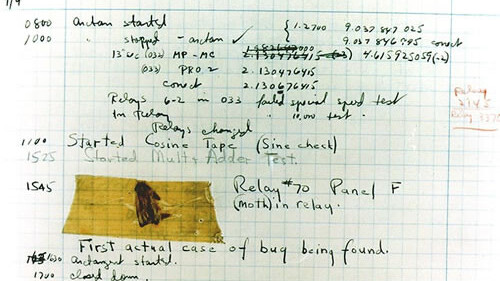 9/9
0800 antan started { 1.2700 9.037 847 025
1000 " stopped - antan ✓ 9.037 846 995 conect
13"uc (032) MP-MC 2.130476415 (-3) 4.615925059(-2)
(033) PRO 2 2.130476415
conect 2.130676415
Relays 6-2 in 033 failed special speed test
In Relay " 10,000 test.
Relay
3370
Relays changed
1100 Started Cosine Tape (Sine check)
1525 Started Mult + Adder Test.
1545 Relay #70 Panel F
(moth) in relay.
First actual case of bug being found.
1630 antangent started.
1700 closed down.